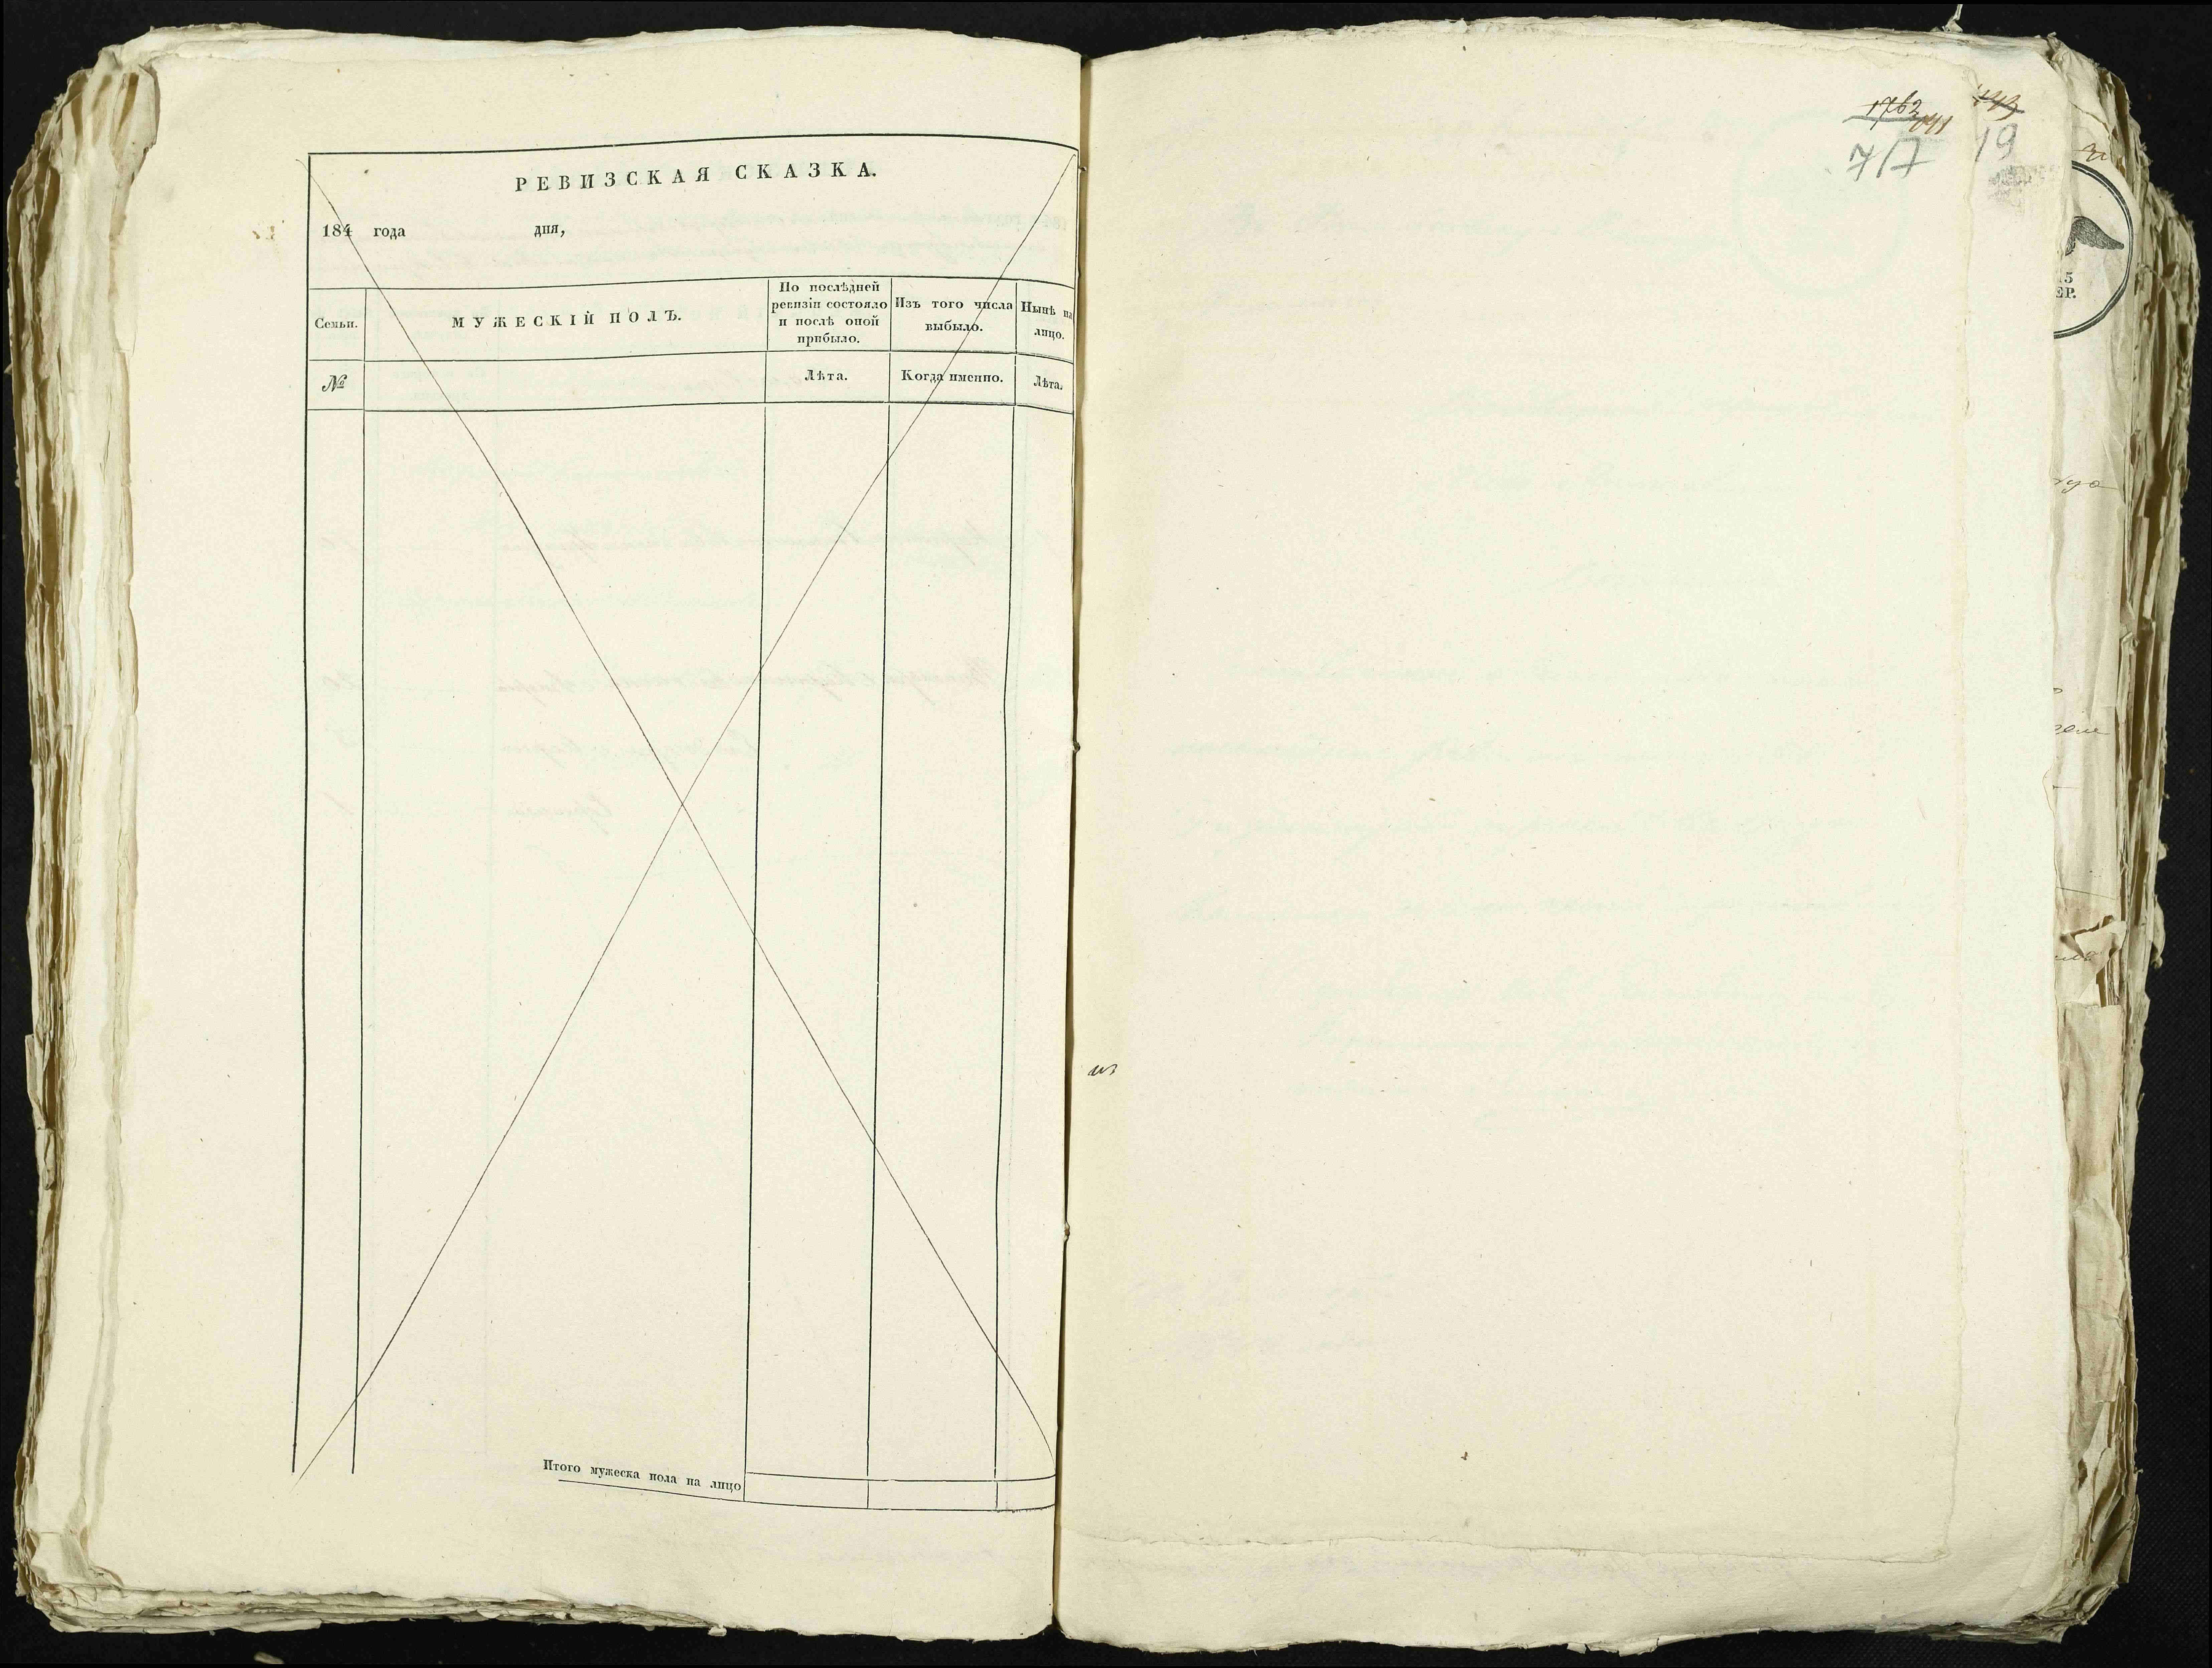 РЕВИЗСКАЯ СКАЗКА.
184 года дня,
Семьи.
МУЖЕСКІЙ ПОЛЪ.
По послѣдней
ревизіи состояло
и послѣ оной
прибыло.
Изъ того числа
выбыло.
Нынѣ на
лицо.
№
Лѣта.
Когда именно.
Лѣта.
Итого мужеска пола на лицо
1762
717
19
15
ЕР.